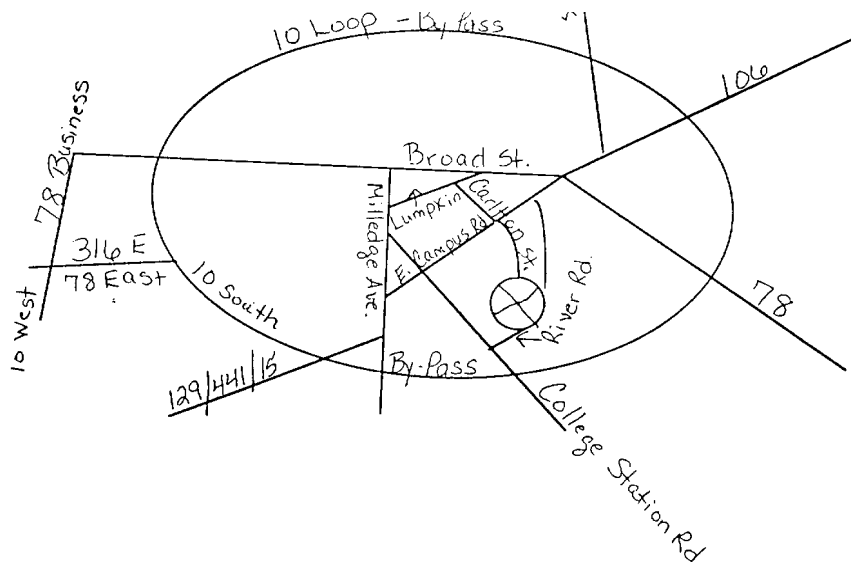 10 Loop - By Pass
106
78 Business
Broad St.
Milledge Ave.
Lumpkin
Carlton St.
E. Campus Rd
316 E
78 East
10 West
10 South
River Rd.
78
129/441/15
By-Pass
College Station Rd